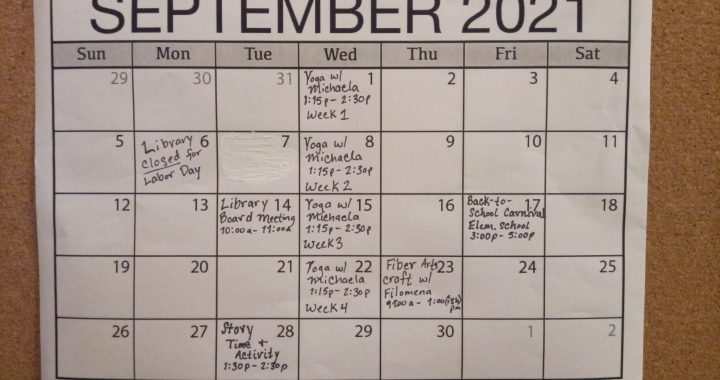 SEPTEMBER 2021
Sun Mon Tue Wed Thu Fri Sat
29
30
31
Yoga w/ 1
Michaela
1:15p - 2:30p
Week 1
2
3
4
5
Library 6
closed for
Labor Day
7
Yoga w/ 8
Michaela
1:15p - 2:30p
Week 2
9
10
11
12
13
Library 14
Board Meeting
10:00a - 11:00a
Yoga w/ 15
Michaela
1:15p - 2:30p
Week 3
16
Back-to- 17
School Carnival
Elem. School
3:00p - 5:00p
18
19
20
21
Yoga w/ 22
Michaela
1:15p - 2:30p
Week 4
Fiber Arts 23
craft w/
Filomena
- 1:00(ish)
pm
24
25
26
27
Story 28
Time +
Activity
1:30p - 2:30p
29
30
1
2